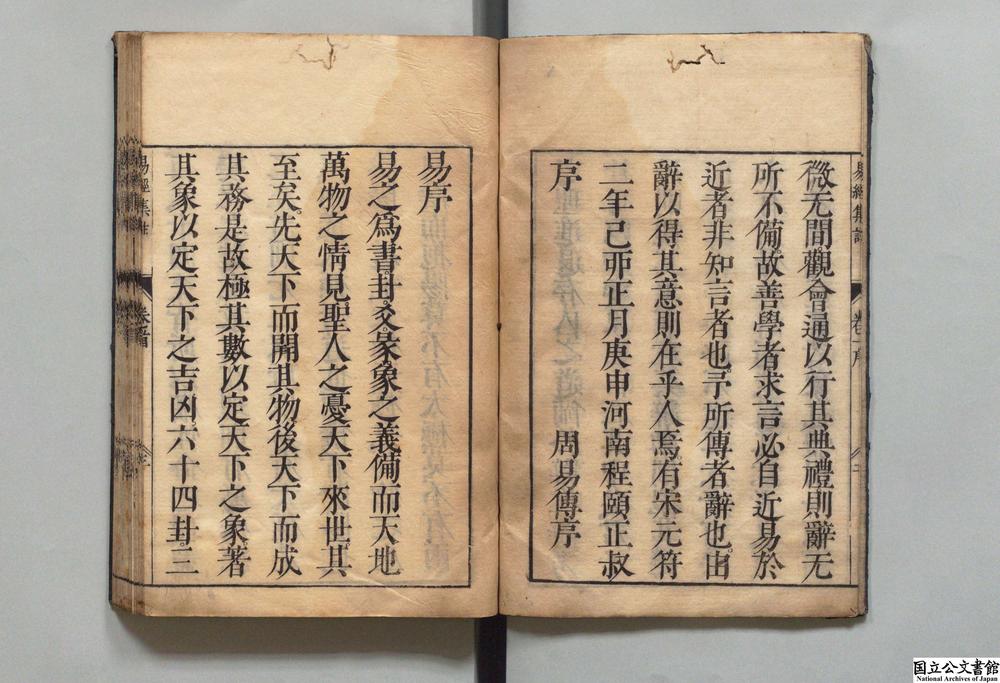 易經集註
卷一序
微无間觀會通以行其典禮則辭无
所不備故善學者求言必自近易於
近者非知言者也予所傳者辭也由
辭以得其意則在乎人焉有宋元符
二年己卯正月庚申河南程頤正叔
序　周易傳序
易序
易之爲書卦爻彖象之義備而天地
萬物之情見聖人之憂天下來世其
至矣先天下而開其物後天下而成
其務是故極其數以定天下之象著
其象以定天下之吉凶六十四卦三
易經集註
國立公文書館
National Archives of Japan